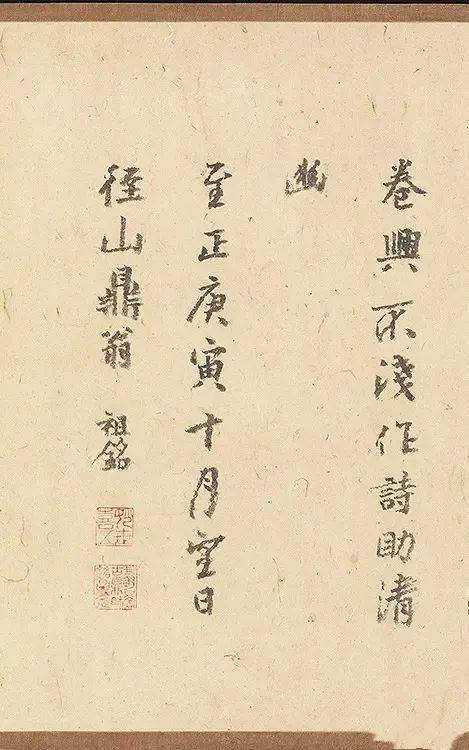 卷興不淺作詩助清
幽
至正庚寅十月望日
徑山鼎翁 祖銘